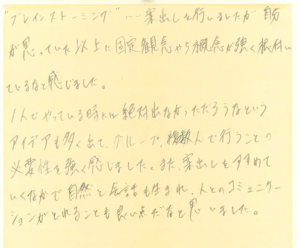 ブレインストーミング…案出しを行いましたが 自分
が思っていた以上に固定観念や概念が強く根付い
ているなと感じました。
1人でやっている時には絶対出なかっただろうなという
アイデアも多く出て、グループ、複数人で行うことの
必要性を強く感じました。また、案出しをすすめて
いくなかで自然と会話も生まれ、人とのコミュニケー
ションがとれることも良い点だなと思いました。